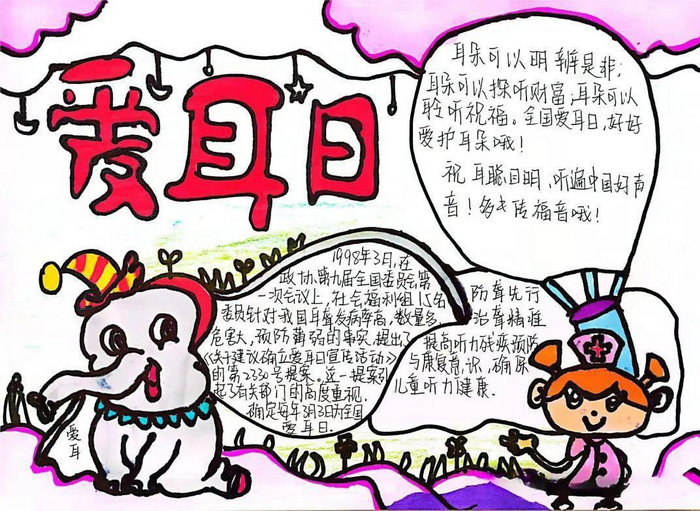 爱耳日
耳朵可以明辨是非;
耳朵可以探听财富;耳朵可以
聆听祝福。全国爱耳日,好好
爱护耳朵哦!
祝耳聪目明,听遍中国好声
音!多多传福音哦!
1998年3月,在
政协第九届全国委员会第
一次会议上,社会福利组15名
委员针对我国耳聋发病率高,数量多
危害大,预防薄弱的事实,提出了
《关于建议确立爱耳日宣传活动》
的第2330号提案。这一提案引
起了有关部门的高度重视,
确定每年3月3日为全国
爱耳日。
防聋先行
治聋精准
提高听力残疾预防
与康复意识,确保
儿童听力健康.
爱耳